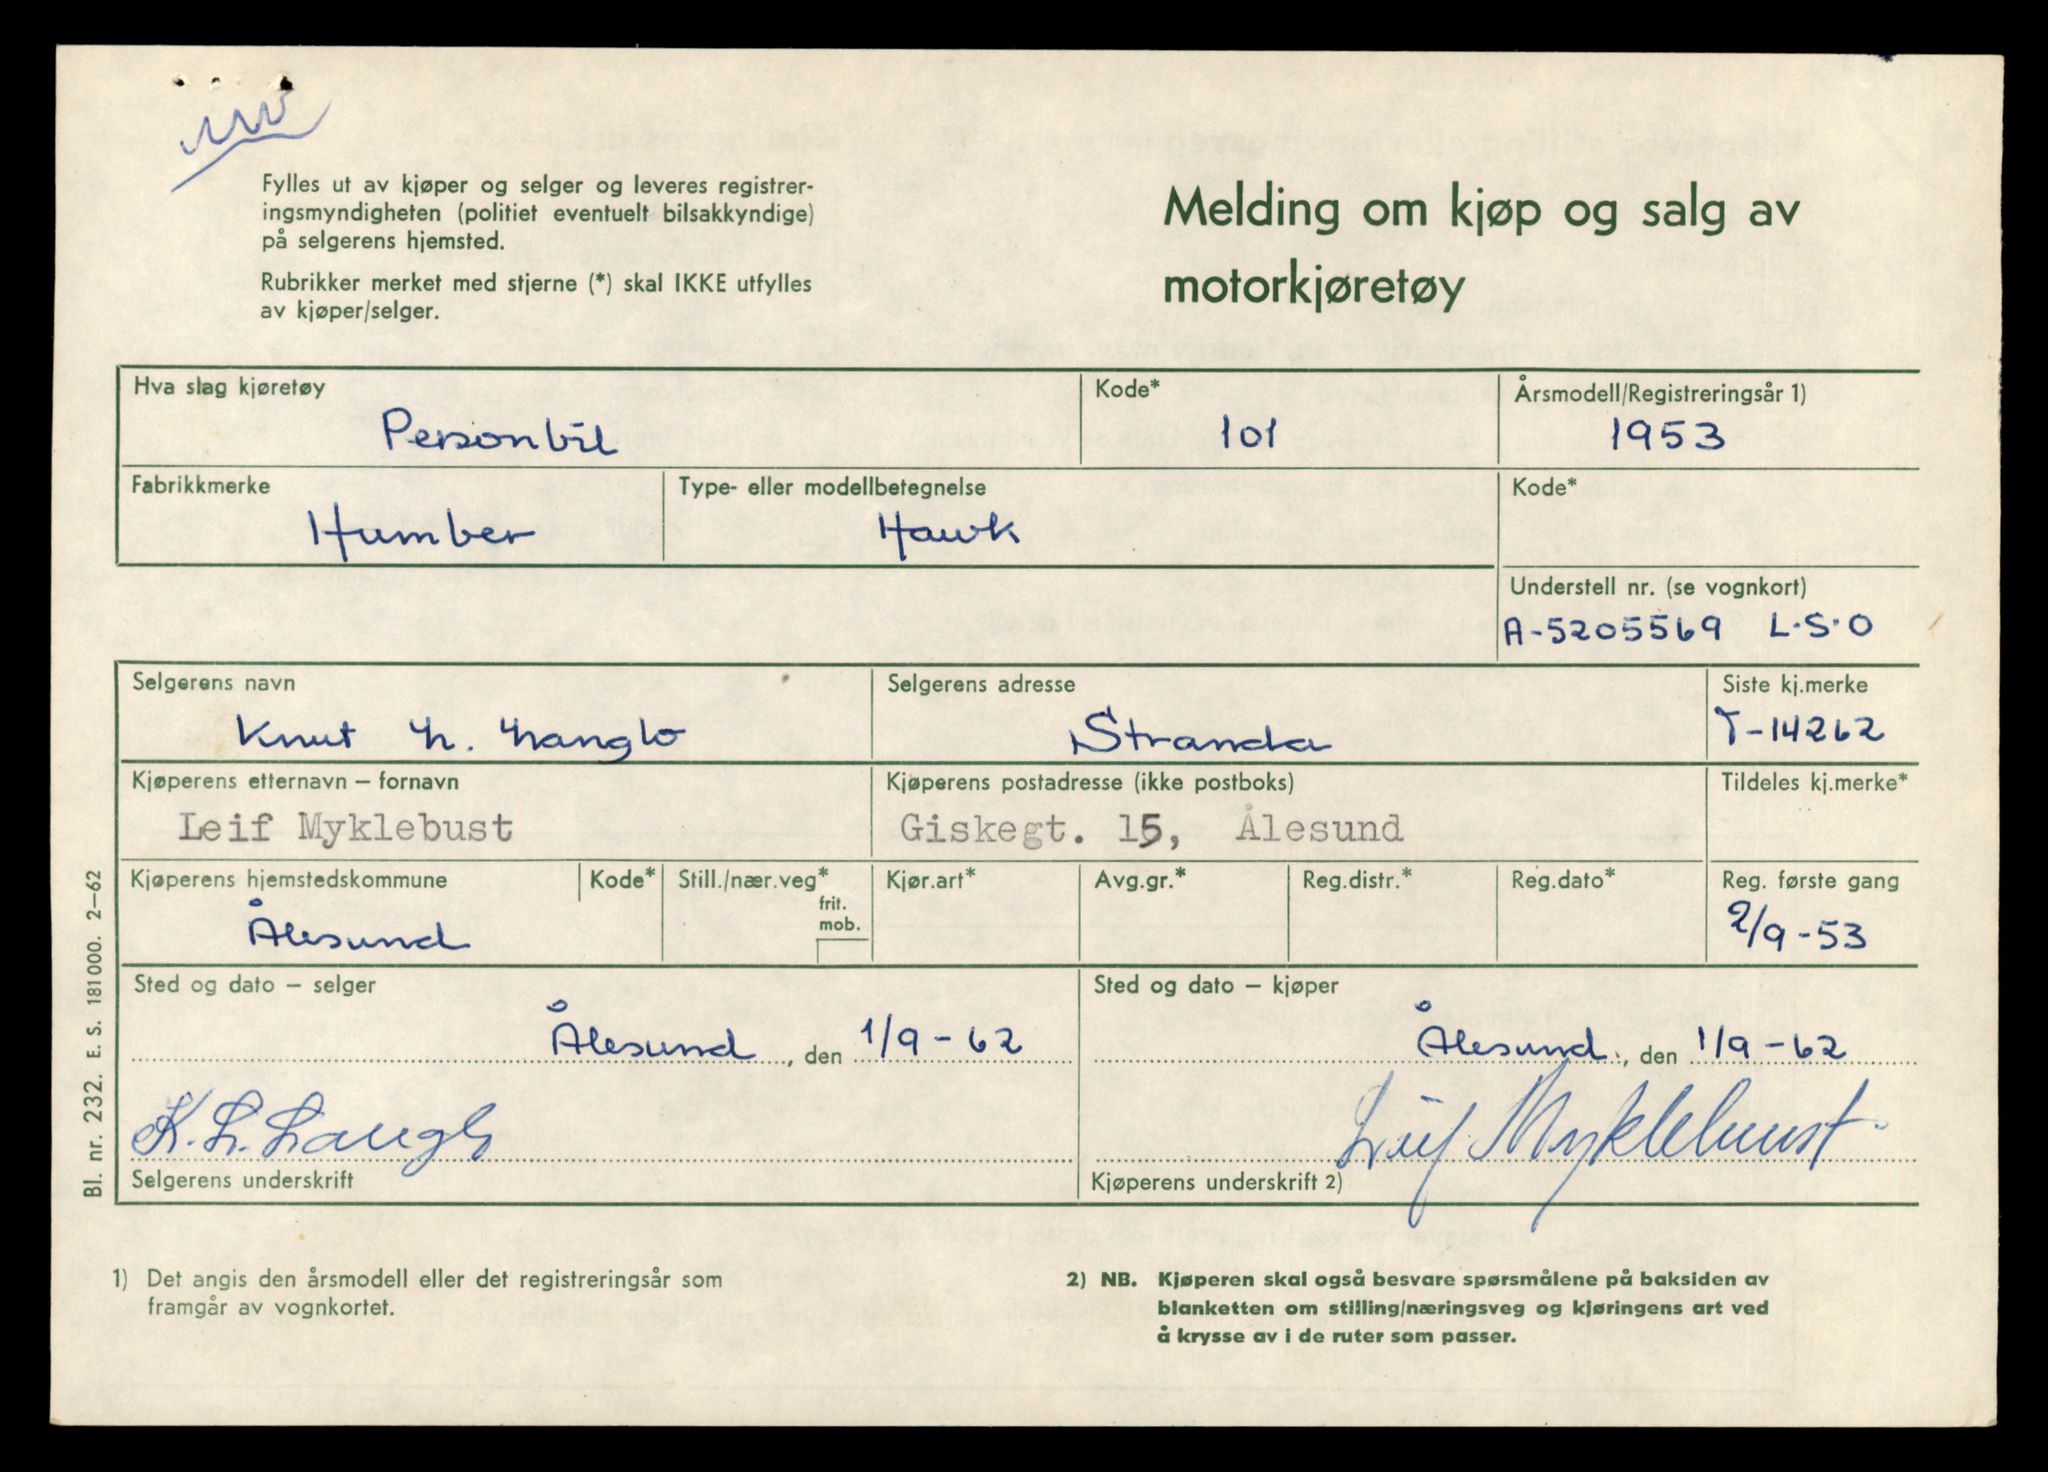 Fylles ut av kjøper og selger og leveres registrer-
ingsmyndigheten (politiet eventuelt bilsakkyndige)
på selgerens hjemsted.
Rubrikker merket med stjerne (*) skal IKKE utfylles
av kjøper/selger.
Melding om kjøp og salg av
motorkjøretøy
Hva slag kjøretøy
Personbil
Kode*
101
Årsmodell/Registreringsår 1)
1953
Fabrikkmerke
Humber
Type- eller modellbetegnelse
Hawk
Kode*
Understell nr. (se vognkort)
A-5205569 L.S.O
Selgerens navn
Knut L. Langlo
Selgerens adresse
Stranda
Siste kj.merke
T-14262
Kjøperens etternavn – fornavn
Leif Myklebust
Kjøperens postadresse (ikke postboks)
Giskegt. 15, Ålesund
Tildeles kj.merke*
Kjøperens hjemstedskommune
Ålesund
Kode*
Still./nær.veg*
frit.
mob.
Kjør.art*
Avg.gr.*
Reg.distr.*
Reg.dato*
Reg. første gang
2/9-53
Sted og dato – selger
Ålesund, den 1/9-62
K. L. Langlo
Selgerens underskrift
Sted og dato – kjøper
Ålesund, den 1/9-62
Leif Myklebust.
Kjøperens underskrift 2)
Bl. nr. 232. E. S. 181 000. 2–62
1) Det angis den årsmodell eller det registreringsår som
framgår av vognkortet.
2) NB. Kjøperen skal også besvare spørsmålene på baksiden av
blanketten om stilling/næringsveg og kjøringens art ved
å krysse av i de ruter som passer.